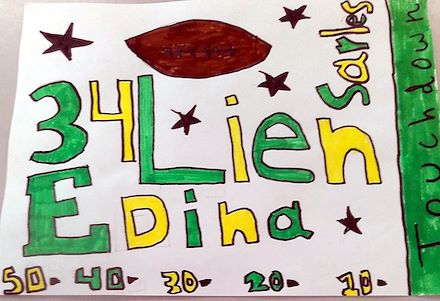 34 Lien
Sarles
Edina
50- 40- 30- 20- 10-
Touchdown